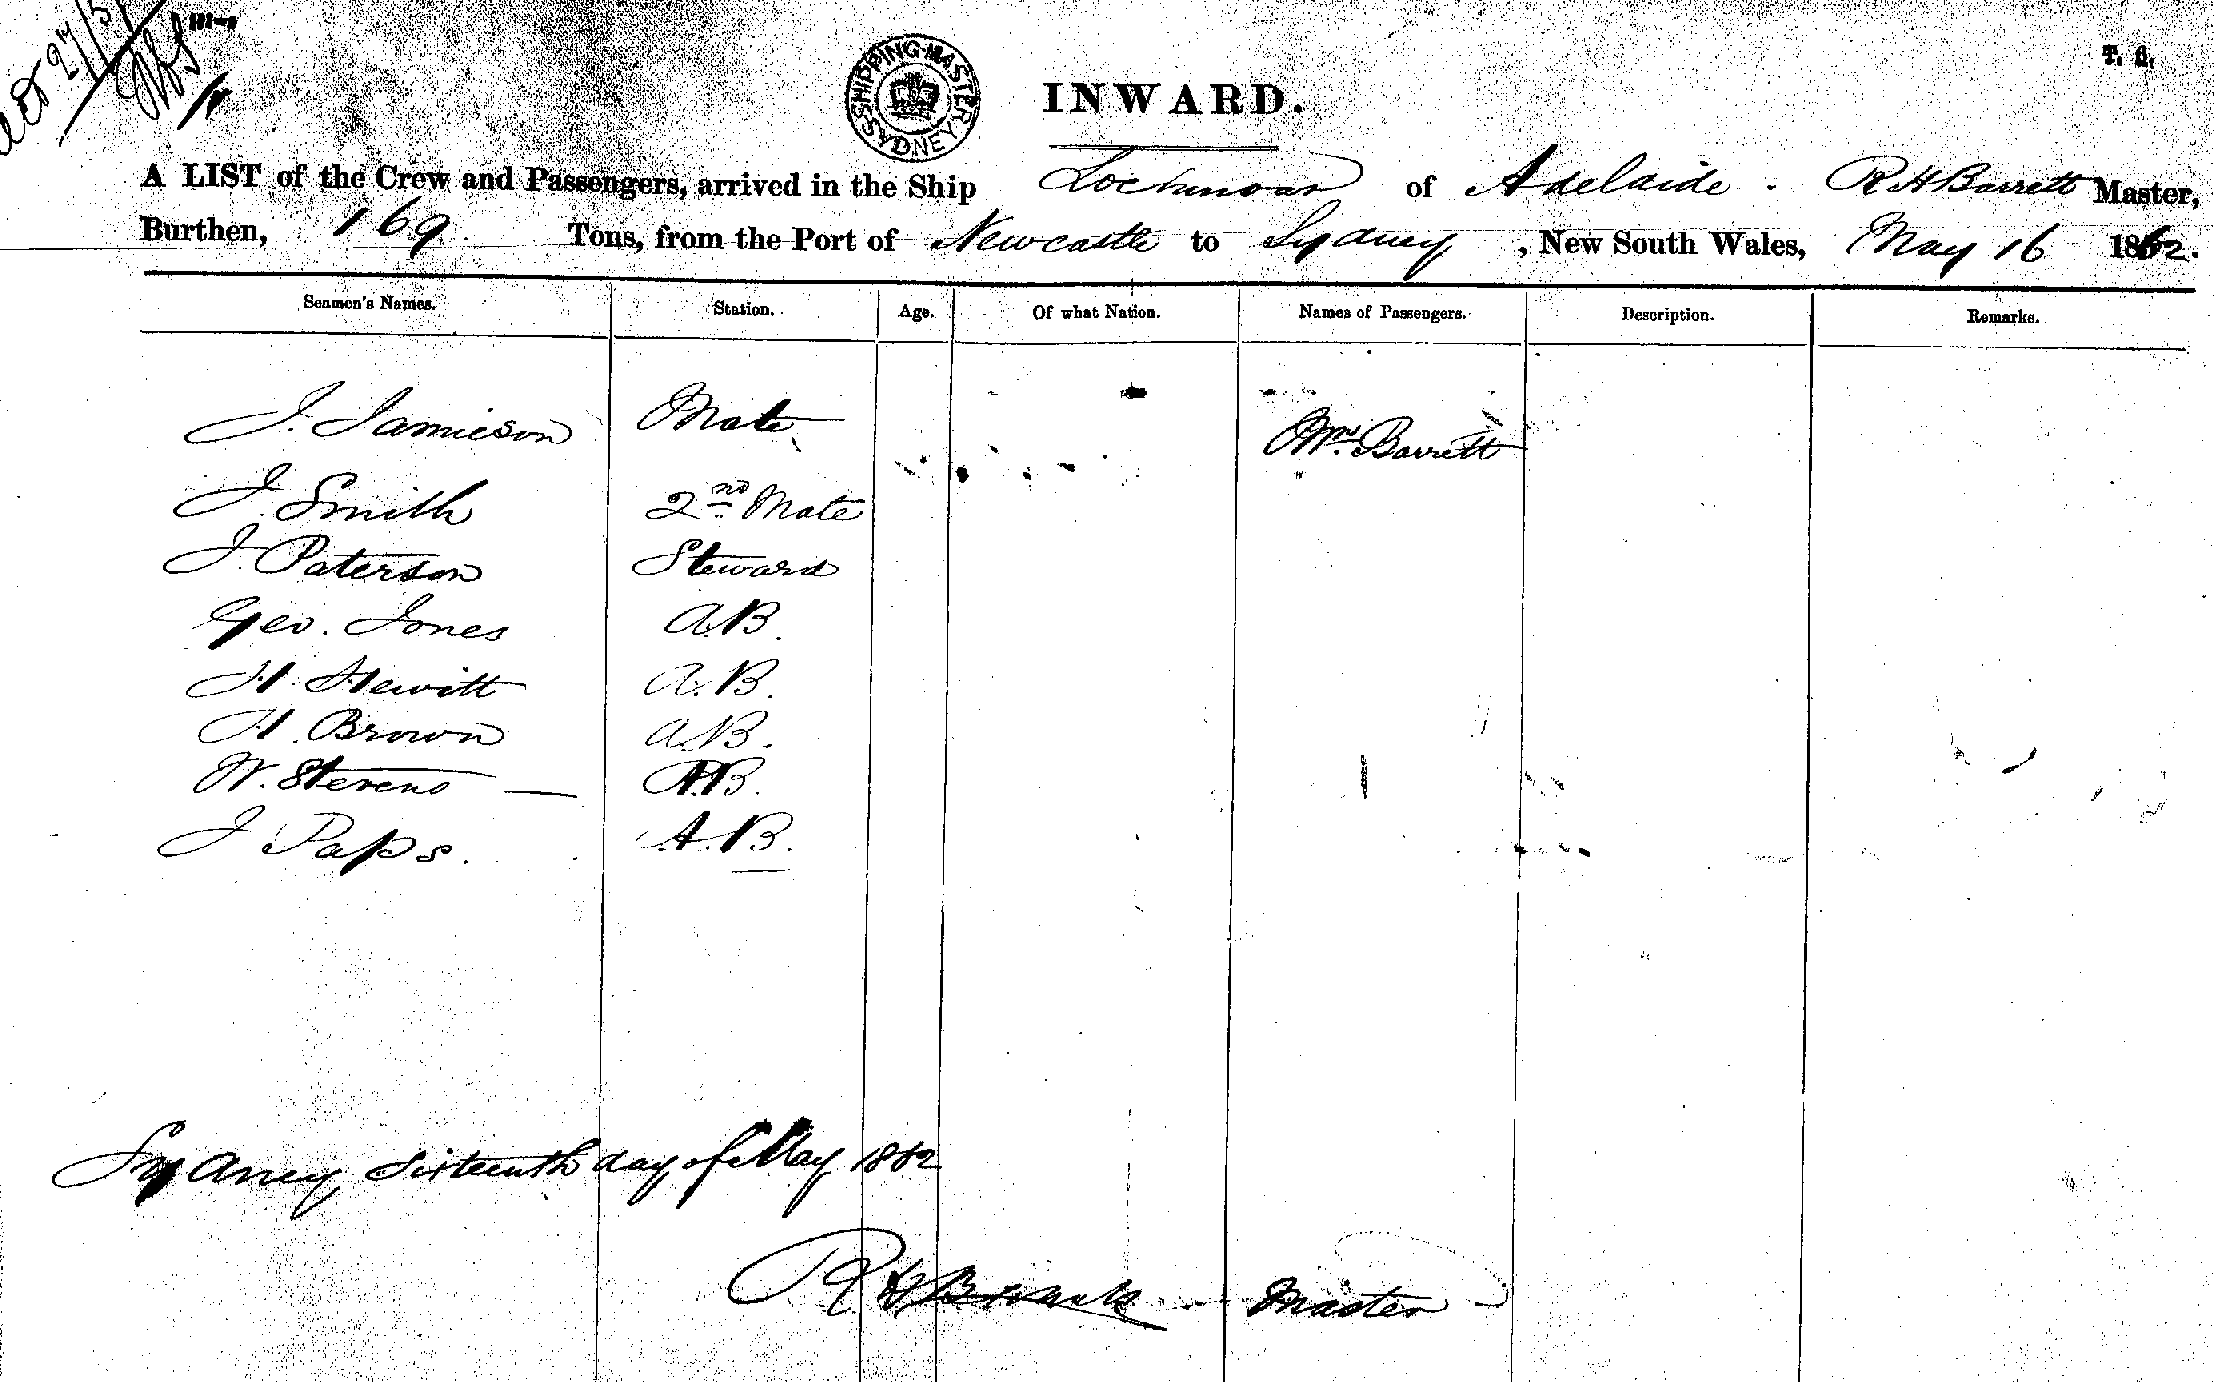 SHIPPING MASTER
SYDNEY
T. S.
INWARD.
A LIST of the Crew and Passengers, arrived in the Ship Lochinvar of Adelaide. R H Barrett Master,
Burthen, 169 Tons, from the Port of Newcastle to Sydney, New South Wales, May 16 1862.
Seamen's Names. Station. Age. Of what Nation. Names of Passengers. Description. Remarks.
J. Jamieson Mate Mrs. Barrett
J. Smith 2nd Mate
J. Paterson Steward
Geo. Jones A.B.
H. Hewitt A.B.
H. Brown A.B.
W. Stevens A.B.
J Paps. A.B.
Sydney Sixteenth day of May 1862
R H Barrett Master